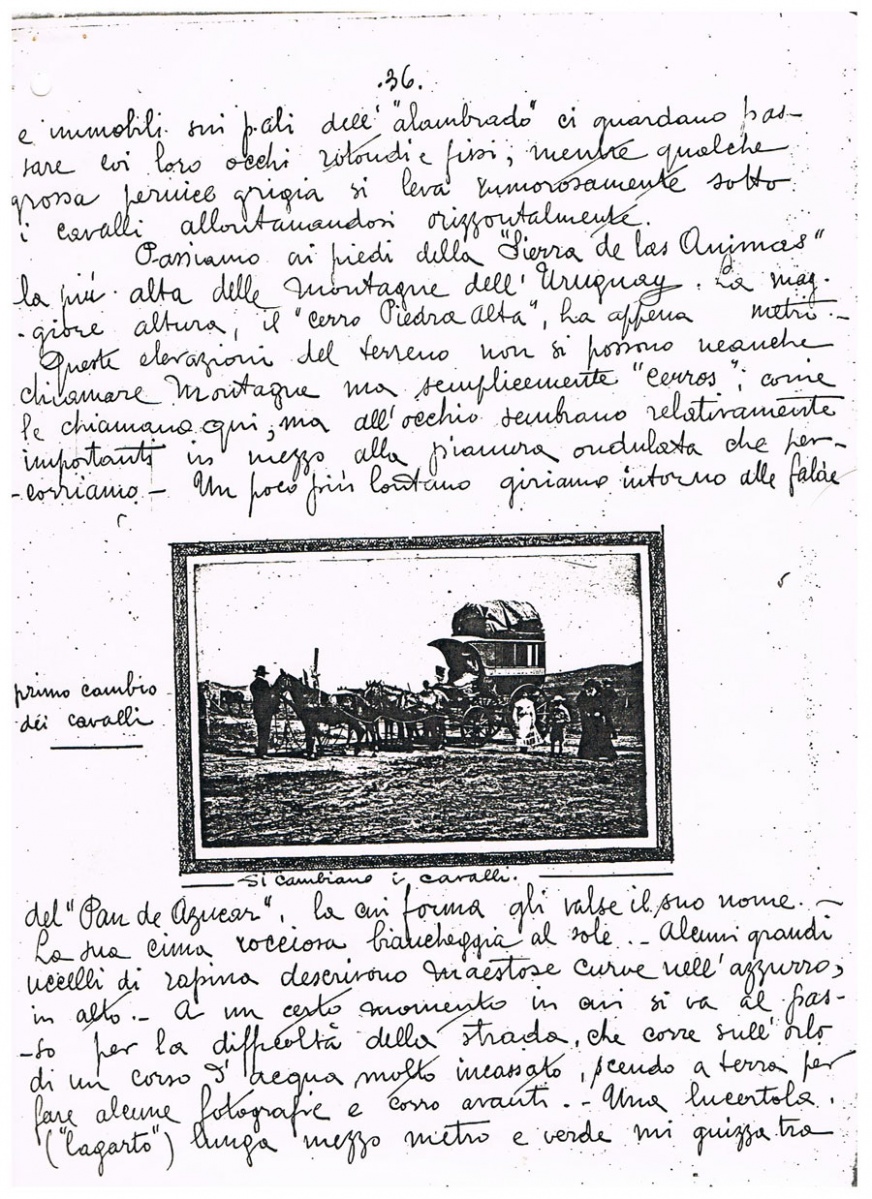 .36.
e immobili sui pali dell' "alambrado" ci guardano pas-
sare coi loro occhi rotondi e fissi, mentre qualche
grossa pernice grigia si leva rumorosamente sotto
i cavalli allontanandosi orizzontalmente.
Passiamo ai piedi della "Sierra de las Animas"
la più alta delle montagne dell'Uruguay. La mag-
-giore altura, il "cerro Piedra Alta", ha appena metri -
Queste elevazioni del terreno non si possono neanche
chiamare Montagne ma semplicemente "cerros", come
le chiamano qui, ma all'occhio sembrano relativamente
importanti in mezzo alla pianura ondulata che per-
-corriamo - Un poco più lontano giriamo intorno alle falde
primo cambio
dei cavalli
Si cambiano i cavalli.
del "Pan de Azucar", la cui forma gli valse il suo nome. -
La sua cima rocciosa biancheggia al sole. - Alcuni grandi
uccelli di rapina descrivono maestose curve nell'azzurro,
in alto. - A un certo momento in cui si va al pas-
-so per la difficoltà della strada, che corre sull'orlo
di un corso d'acqua molto incassato, scendo a terra per
fare alcune fotografie e corro avanti. - Una lucertola
("lagarto") lunga mezzo metro e verde mi guizza tra